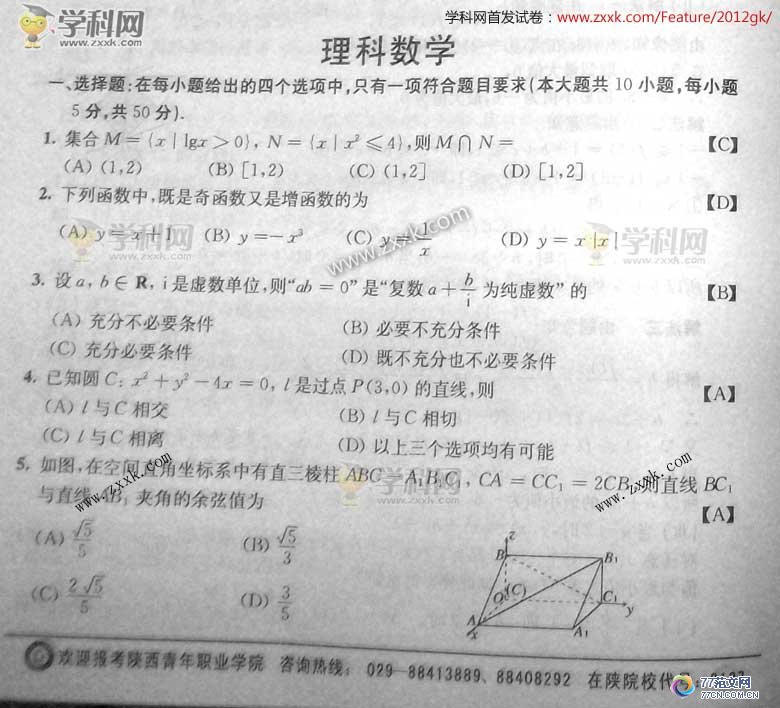 学科网首发试卷：www.zxxk.com/Feature/2012gk/
学科网
www.zxxk.com
理科数学
一、选择题:在每小题给出的四个选项中,只有一项符合题目要求(本大题共 10 小题,每小题
5 分,共 50 分).
1. 集合 M = {x | lgx > 0}, N = {x | x² ⩽ 4}, 则 M ∩ N = 【C】
(A) (1,2) (B) [1,2) (C) (1,2] (D) [1,2]
2. 下列函数中,既是奇函数又是增函数的为 【D】
(A) y = x + 1 (B) y = − x³ (C) y = 1/x (D) y = x |x|
学科网
zxxk.com
www.zxxk.com
学科网
zxxk.com
3. 设 a, b ∈ R, i 是虚数单位,则“ab = 0”是“复数 a + b/i 为纯虚数”的 【B】
(A) 充分不必要条件 (B) 必要不充分条件
(C) 充分必要条件 (D) 既不充分也不必要条件
4. 已知圆 C: x² + y² − 4x = 0, l 是过点 P(3,0) 的直线,则 【A】
(A) l 与 C 相交 (B) l 与 C 相切
(C) l 与 C 相离 (D) 以上三个选项均有可能
5. 如图,在空间直角坐标系中有直三棱柱 ABC − A₁B₁C₁, CA = CC₁ = 2CB, 则直线 BC₁
与直线 AB₁ 夹角的余弦值为 【A】
www.zxxk.com
学科网
www.zxxk.com
www.zxxk.com
(A) √5/5 (B) √5/3
(C) 2√5/5 (D) 3/5
z
B B₁
O (C) C₁ y
A
x A₁
欢迎报考陕西青年职业学院 咨询热线: 029—88413889、88408292 在陕院校代号:
77范文网
77CN.COM.CN